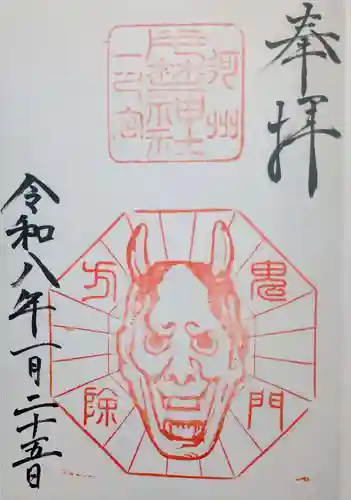 奉拝
河州
片埜神社
一之宮
鬼門
方除
令和八年一月二十五日